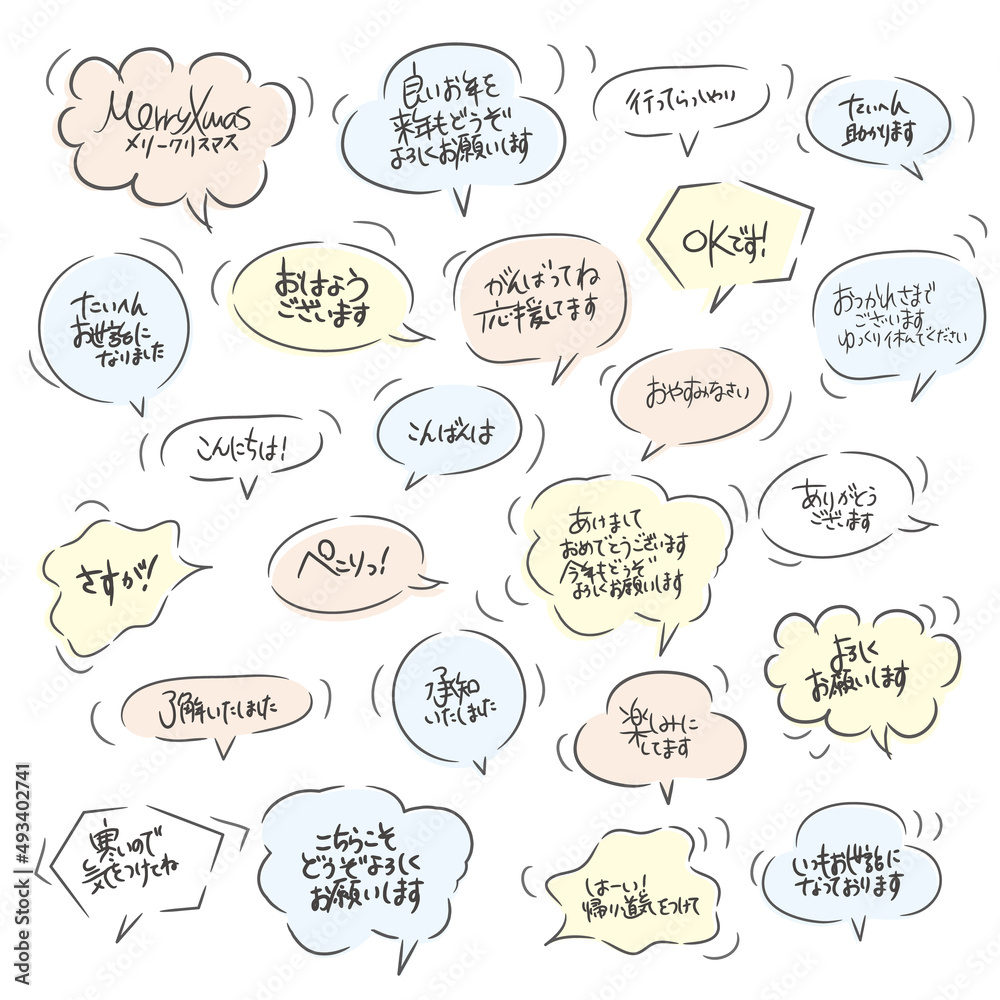 MerryXmas
メリークリスマス
良いお年を
来年もどうぞ
よろしくお願いします
行ってらっしゃい
たいへん
助かります
OKです!
たいへん
お世話に
なりました
おはよう
ございます
がんばってね
応援してます
おつかれさまで
ございます
ゆっくり休んでください
おやすみなさい
こんにちは!
こんばんは
ありがとう
ございます
さすが!
ぺこりっ!
あけまして
おめでとうございます
今年もどうぞ
よろしくお願いします
よろしく
お願いします
了解いたしました
承知
いたしました
楽しみに
してます
寒いので
気をつけてね
こちらこそ
どうぞよろしく
お願いします
はーい!
帰り道気をつけて
いつもお世話に
なっております
Adobe Stock | #493402741